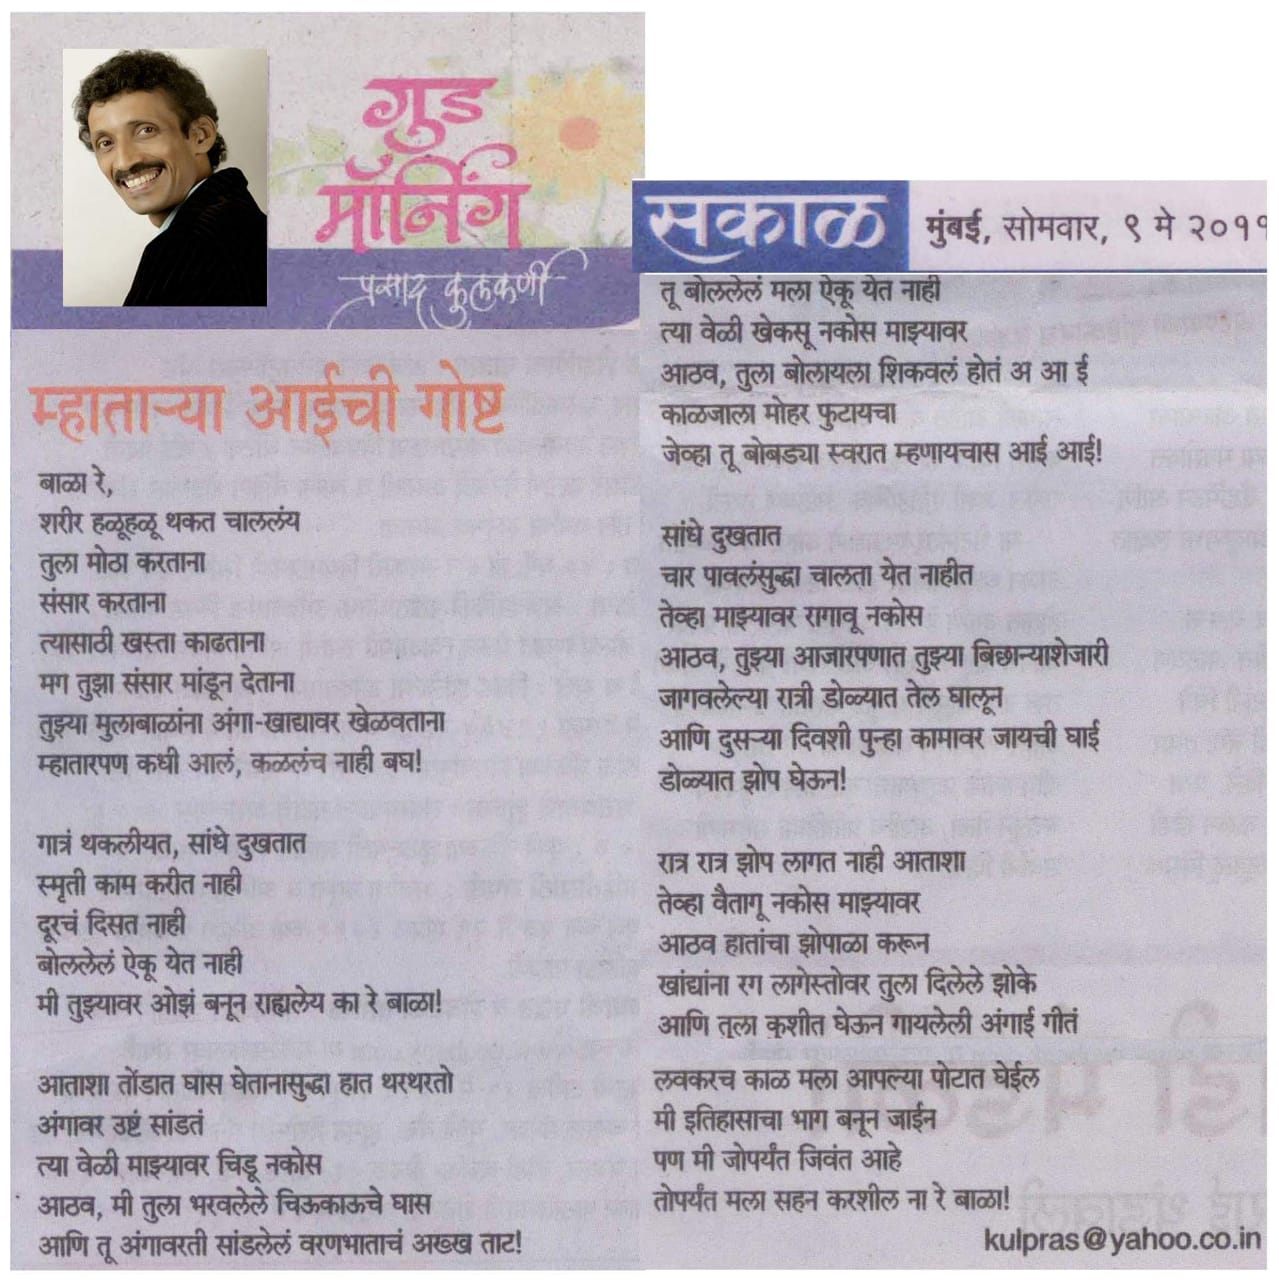 गुड
मॉर्निंग
प्रसाद कुलकर्णी
म्हाताऱ्या आईची गोष्ट
बाळा रे,
शरीर हळूहळू थकत चाललंय
तुला मोठा करताना
संसार करताना
त्यासाठी खस्ता काढताना
मग तुझा संसार मांडून देताना
तुझ्या मुलाबाळांना अंगा-खाद्यावर खेळवताना
म्हातारपण कधी आलं, कळलंच नाही बघ!
गात्रं थकलीयत, सांधे दुखतात
स्मृती काम करीत नाही
दूरचं दिसत नाही
बोललेलं ऐकू येत नाही
मी तुझ्यावर ओझं बनून राह्यलेय का रे बाळा!
आताशा तोंडात घांस घेतानासुद्धा हात थरथरतो
अंगावर उष्टं सांडतं
त्या वेळी माझ्यावर चिडू नकोस
आठव, मी तुला भरवलेले चिऊकाऊचे घास
आणि तू अंगावरती सांडलेलं वरणभाताचं अख्ख ताट!
सकाळ
मुंबई, सोमवार, ९ मे २०११
तू बोललेलं मला ऐकू येत नाही
त्या वेळी खेकसू नकोस माझ्यावर
आठव, तुला बोलायला शिकवलं होतं अ आ ई
काळजाला मोहर फुटायचा
जेव्हा तू बोबड्या स्वरात म्हणायचास आई आई!
सांधे दुखतात
चार पावलंसुद्धा चालता येत नाहीत
तेव्हा माझ्यावर रागावू नकोस
आठव, तुझ्या आजारपणात तुझ्या बिछान्याशेजारी
जागवलेल्या रात्री डोळ्यात तेल घालून
आणि दुसऱ्या दिवशी पुन्हा कामावर जायची घाई
डोळ्यात झोप घेऊन!
रात्र रात्र झोप लागत नाही आताशा
तेव्हा वैतागू नकोस माझ्यावर
आठव हातांचा झोपाळा करून
खांद्यांना रग लागेस्तोवर तुला दिलेले झोके
आणि तुला कुशीत घेऊन गायलेली अंगाई गीतं
लवकरच काळ मला आपल्या पोटात घेईल
मी इतिहासाचा भाग बनून जाईन
पण मी जोपर्यंत जिवंत आहे
तोपर्यंत मला सहन करशील ना रे बाळा!
kulpras@yahoo.co.in